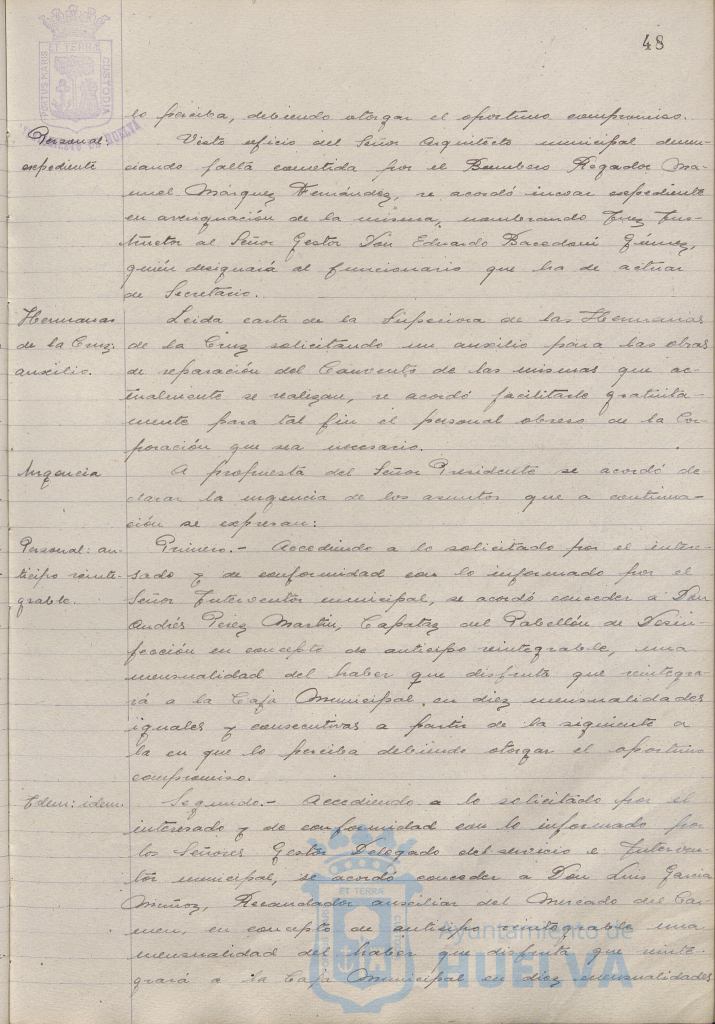 48
PORTUS MARIS ET TERRÆ CUSTODIA
HUELVA
lo perciba, debiendo otorgar el oportuno compromiso.
Personal
expediente
Visto oficio del Señor Arquitecto municipal denun-
ciando falta cometida por el Bombero Regador Ma-
nuel Márquez Fernández, se acordó incoar expediente
en averiguación de la misma, nombrando Juez Ins-
tructor al Señor Gestor Don Eduardo Bacedoni Gómez,
quién designará al funcionario que ha de actuar
de Secretario.
Hermanas
de la Cruz:
auxilio.
Leida carta de la Superiora de las Hermanas
de la Cruz solicitando un auxilio para las obras
de reparación del Convento de las mismas que ac-
tualmente se realizan, se acordó facilitarle gratuita-
mente para tal fin el personal obrero de la Cor-
poración que sea necesario.
Urgencia
A propuesta del Señor Presidente se acordó de-
clarar la urgencia de los asuntos que a continua-
ción se expresan:
Personal: an-
ticipo reinte-
grable.
Primero.- Accediendo a lo solicitado por el intere-
sado y de conformidad con lo informado por el
Señor Interventor municipal, se acordó conceder a Don
Andrés Perez Martin, Capataz del Pabellón de Desin-
fección en concepto de anticipo reintegrable, una
mensualidad del haber que disfruta que reintegra-
rá a la Caja Municipal en diez mensualidades
iguales y consecutivas a partir de la siguiente a
la en que lo perciba debiendo otorgar el oportuno
compromiso.
Idem: idem.
Segundo.- Accediendo a lo solicitado por el
interesado y de conformidad con lo informado por
los Señores Gestor Delegado del servicio e Interven-
tor municipal, se acordó conceder a Don Luis Garcia
Muñoz, Recaudador auxiliar del Mercado del Car-
men, en concepto de anticipo reintegrable una
mensualidad del haber que disfruta que reinte-
grará a la Caja Municipal en diez mensualidades
Ayuntamiento de
HUELVA